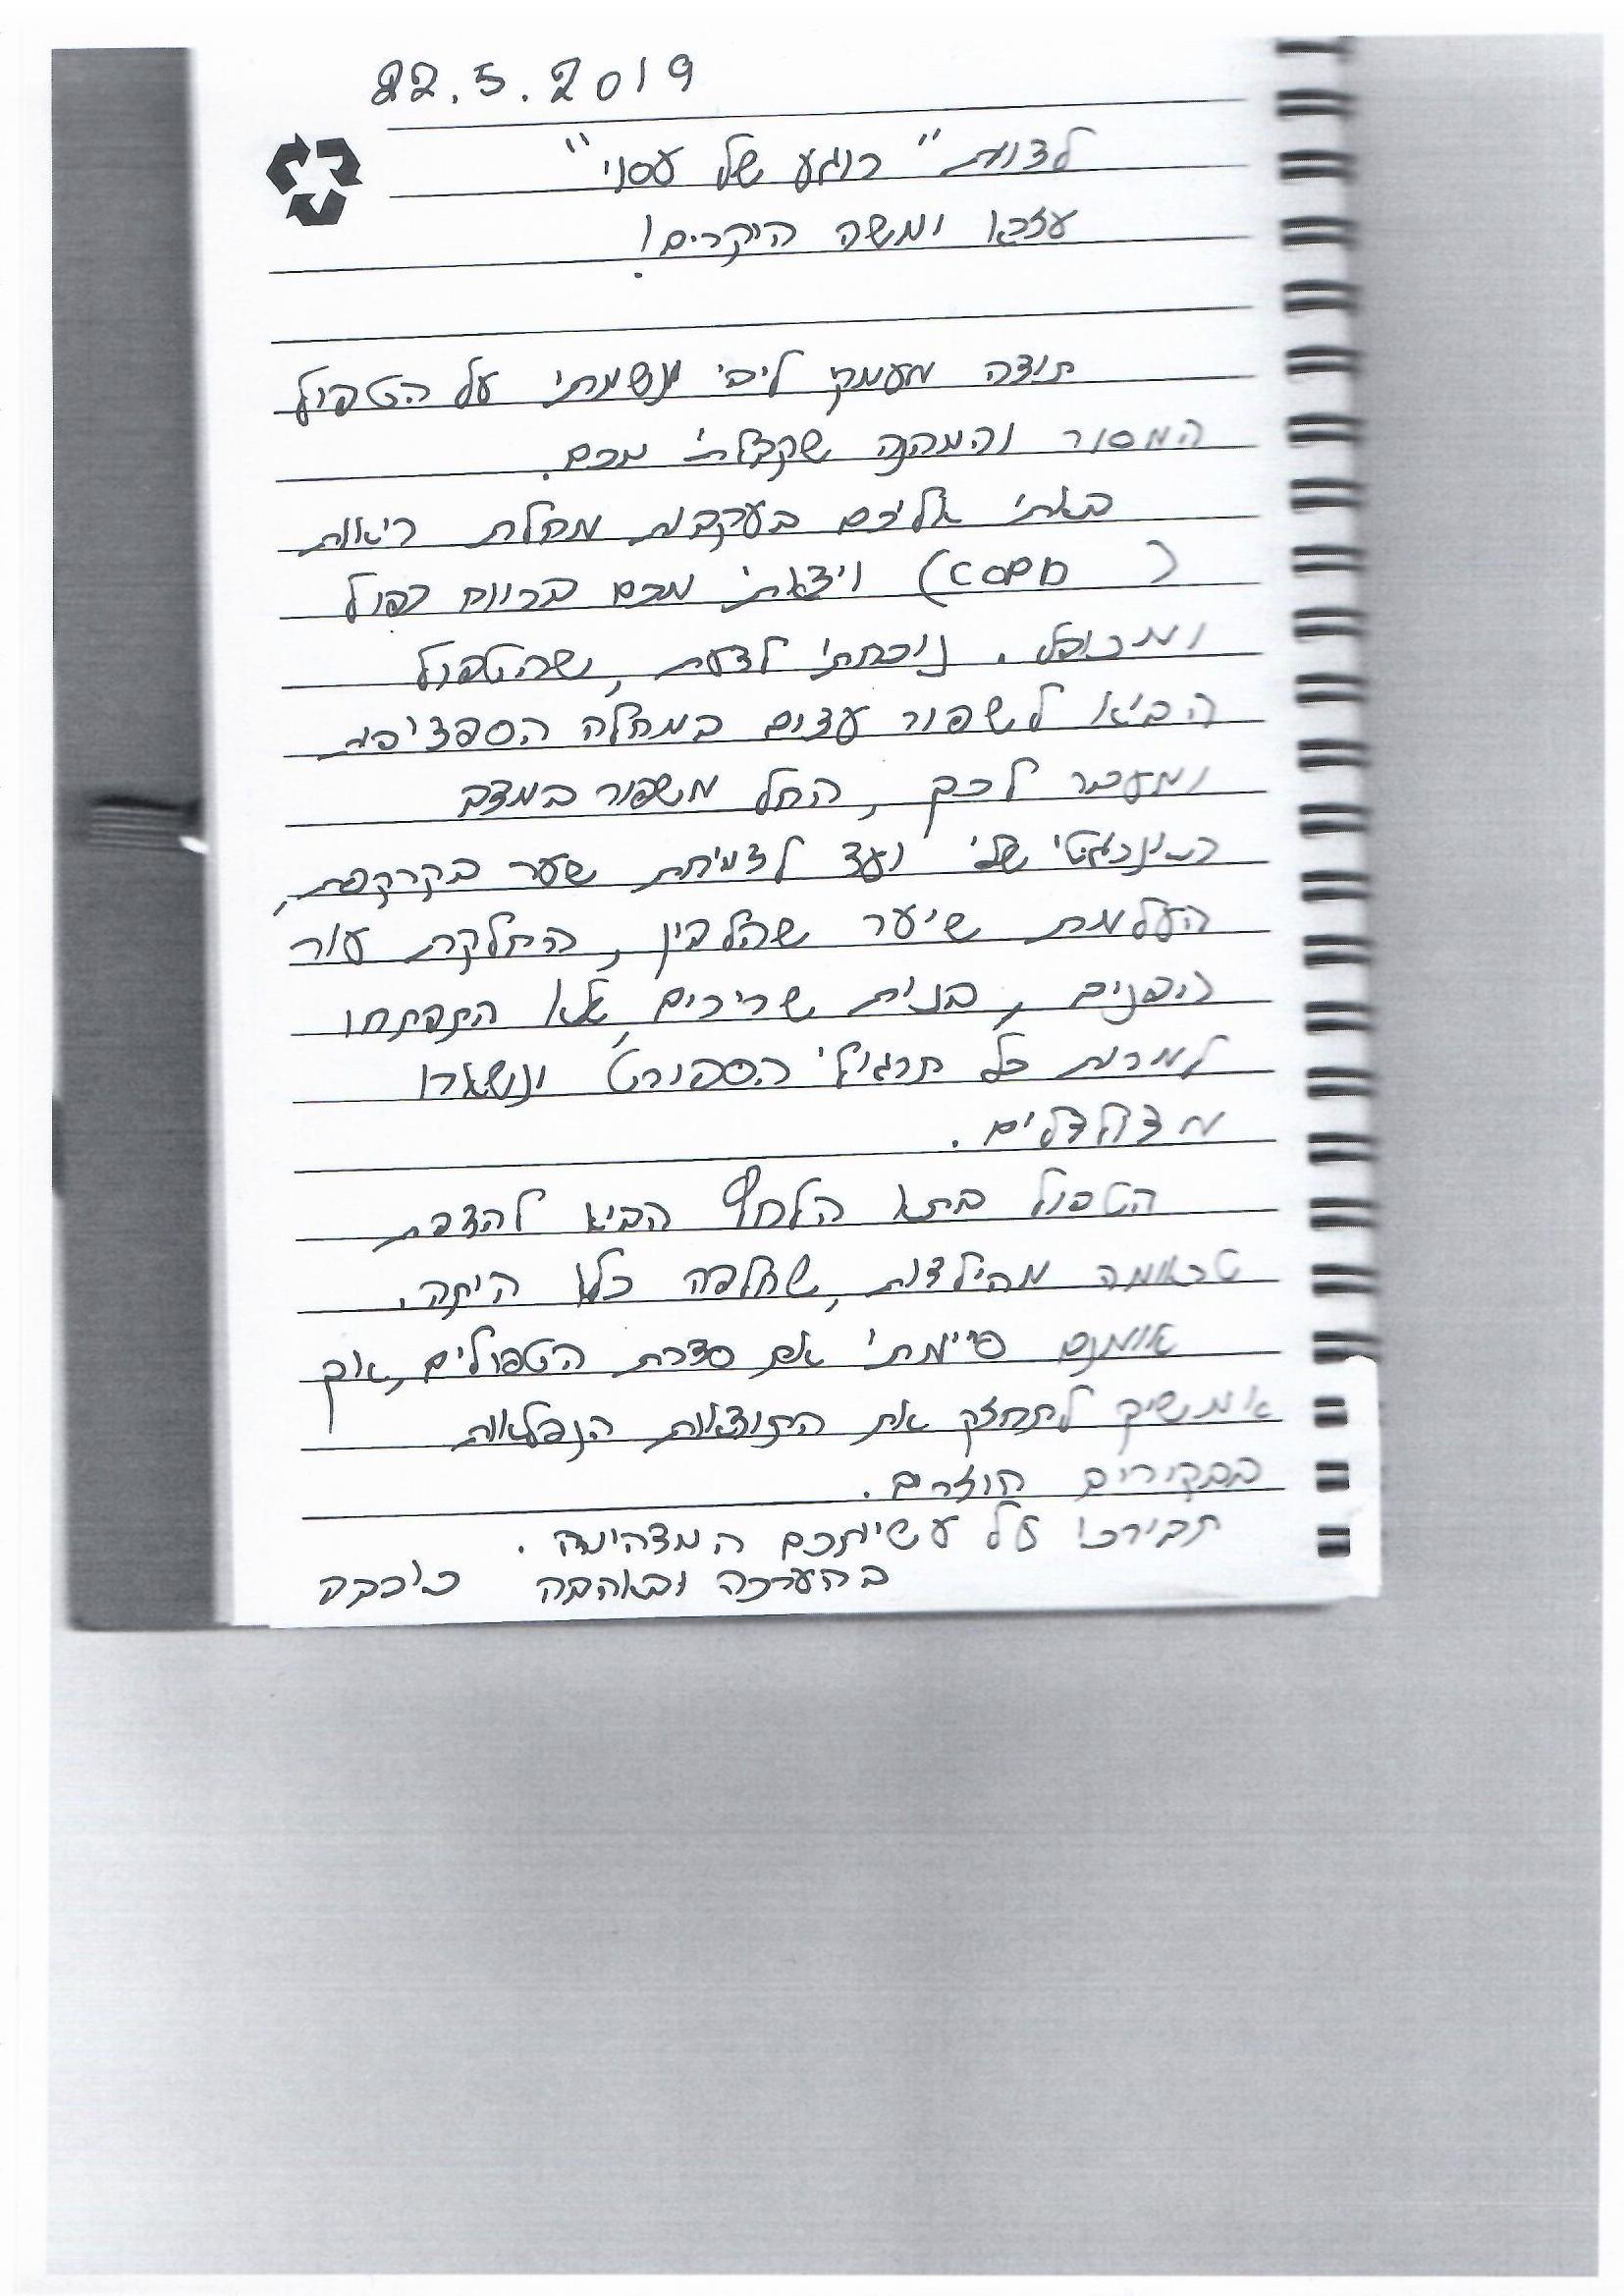 22.5.2019
לצוות "רוגע של עסני"
עזרא ומשה היקרים!
תודה מעומק ליבי ונשמתי על הטפול
המסור והמהנה שקבלתי מכם.
באתי אליכם בעקבות מחלת ריאות
(COPD) ויצאתי מכם ברווח כפול
ומכופל. נוכחתי לדעת, שהטפול
הביא לשפור עצום במחלה הספציפית
ומעבר לכך, החל משפור במצב
האנרגטי שלי ועד לצמיחת שער בקרקפת,
העלמת שיער שהלבין, החלקת עור
הפנים, בנית שרירים, שלא התפתחו
למרות כל תרגילי הספורט ונשארו
מצולדלים.
הטפול בתא הלחץ הביא להצפת
טראומה מהילדות, שחלפה כלא היתה.
אומנם סיימתי את סדרת הטפולים, אך
אמשיך לתחזק את התוצאות הנפלאות
בבקורים חוזרים.
תבורכו על עשייתכם המדהימה.
בהערכה ובאהבה